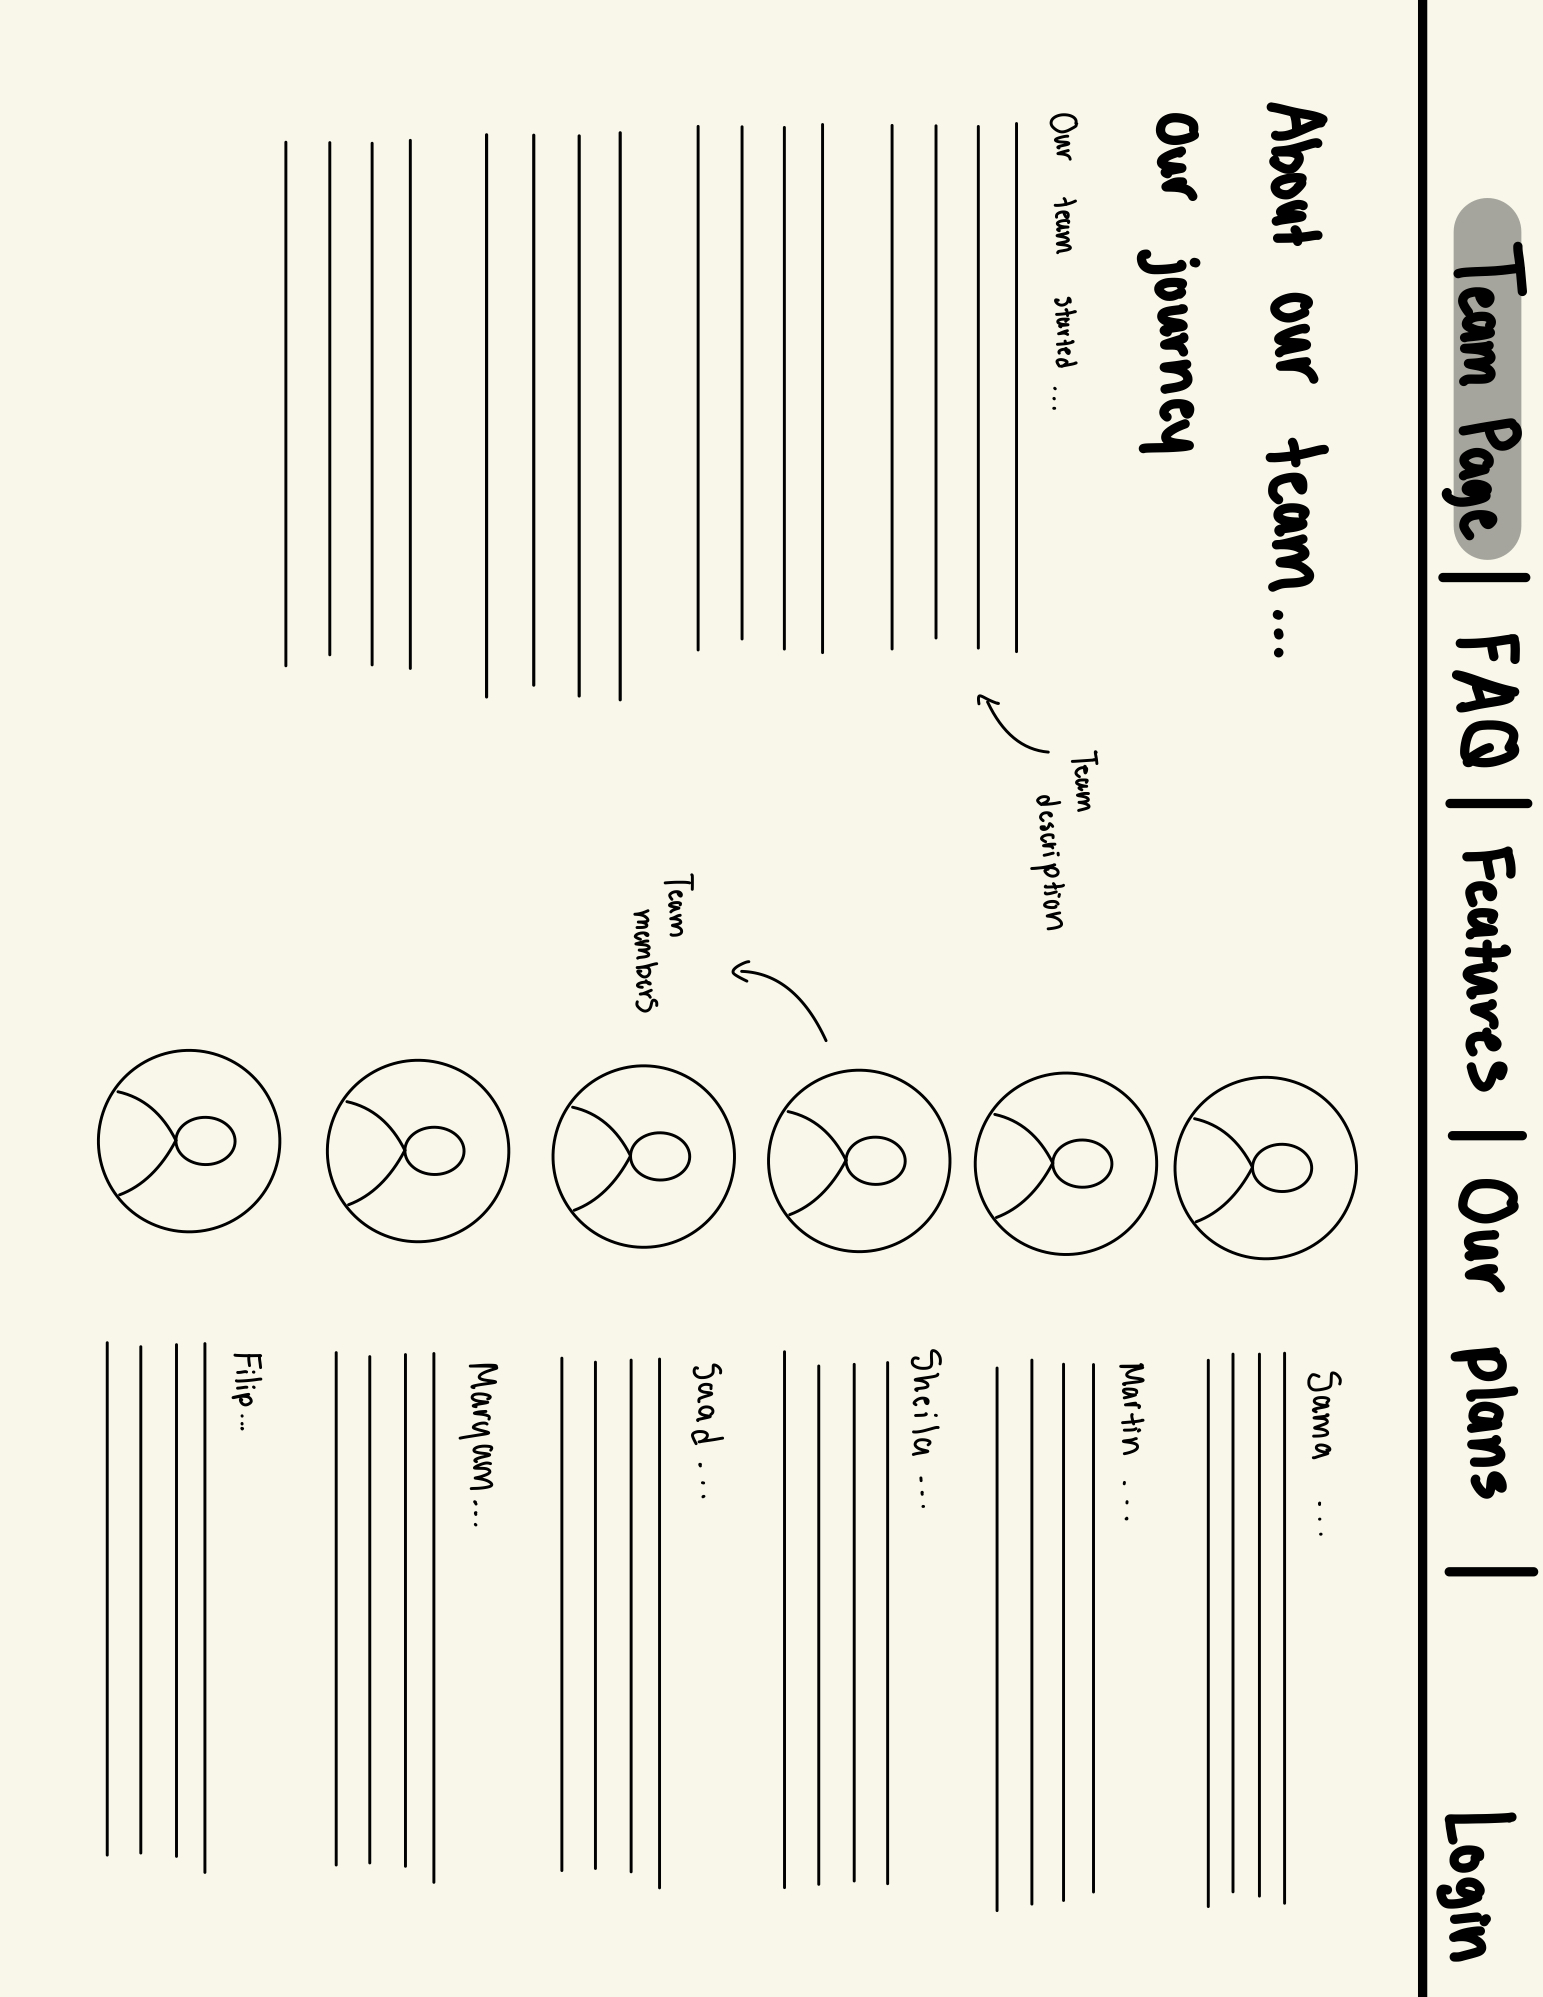 Team Page | FAQ | Features | Our plans | Login
About our team...
Our journey
Our team started ...
Team description
Team members
Sama ...
Martin ...
Sheila ...
Saad ...
Maryam...
Filip...